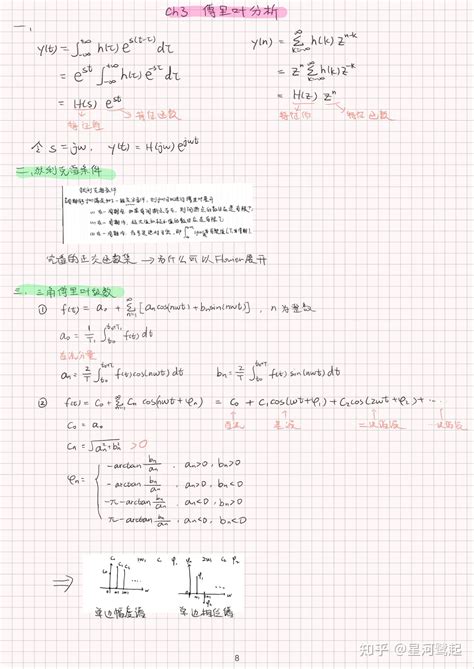 Ch3 傅里叶分析
一、
y(t) = ∫_{-∞}^{+∞} h(τ) e^{s(t-τ)} dτ
= e^{st} ∫_{-∞}^{+∞} h(τ) e^{-sτ} dτ
= H(s) e^{st}
特征值 特征函数
y(n) = Σ_{k=-∞}^{∞} h(k) z^{n-k}
= z^n Σ_{k=-∞}^{∞} h(k) z^{-k}
= H(z) z^n
特征值 特征函数
令 s = jw, y(t) = H(jw) e^{jwt}
二、狄利克雷条件
狄利克雷条件
完备的正交函数集 → 为什么可以Fourier展开
三、三角傅里叶级数
① f(t) = a₀ + Σ_{n=1}^{∞} [an cos(nwt) + bn sin(nwt)], n为整数
a₀ = 1/T ∫_{t₀}^{t₀+T} f(t) dt
直流分量
an = 2/T ∫_{t₀}^{t₀+T} f(t) cos(nwt) dt bn = 2/T ∫_{t₀}^{t₀+T} f(t) sin(nwt) dt
② f(t) = C₀ + Σ_{n=1}^{∞} Cn cos(nwt + φn) = C₀ + C₁ cos(wt+φ₁) + C₂ cos(2wt+φ₂) + ...
直流 基波 二次谐波
C₀ = a₀
Cn = √(an²+bn²) >0
φn = { -arctan bn/an , an>0, bn>0
-arctan bn/an , an>0, bn<0
-π-arctan bn/an , an<0, bn>0
π-arctan bn/an , an<0, bn<0
⇒
单边幅度谱 单边相位谱
8
知乎 @星河鹭起